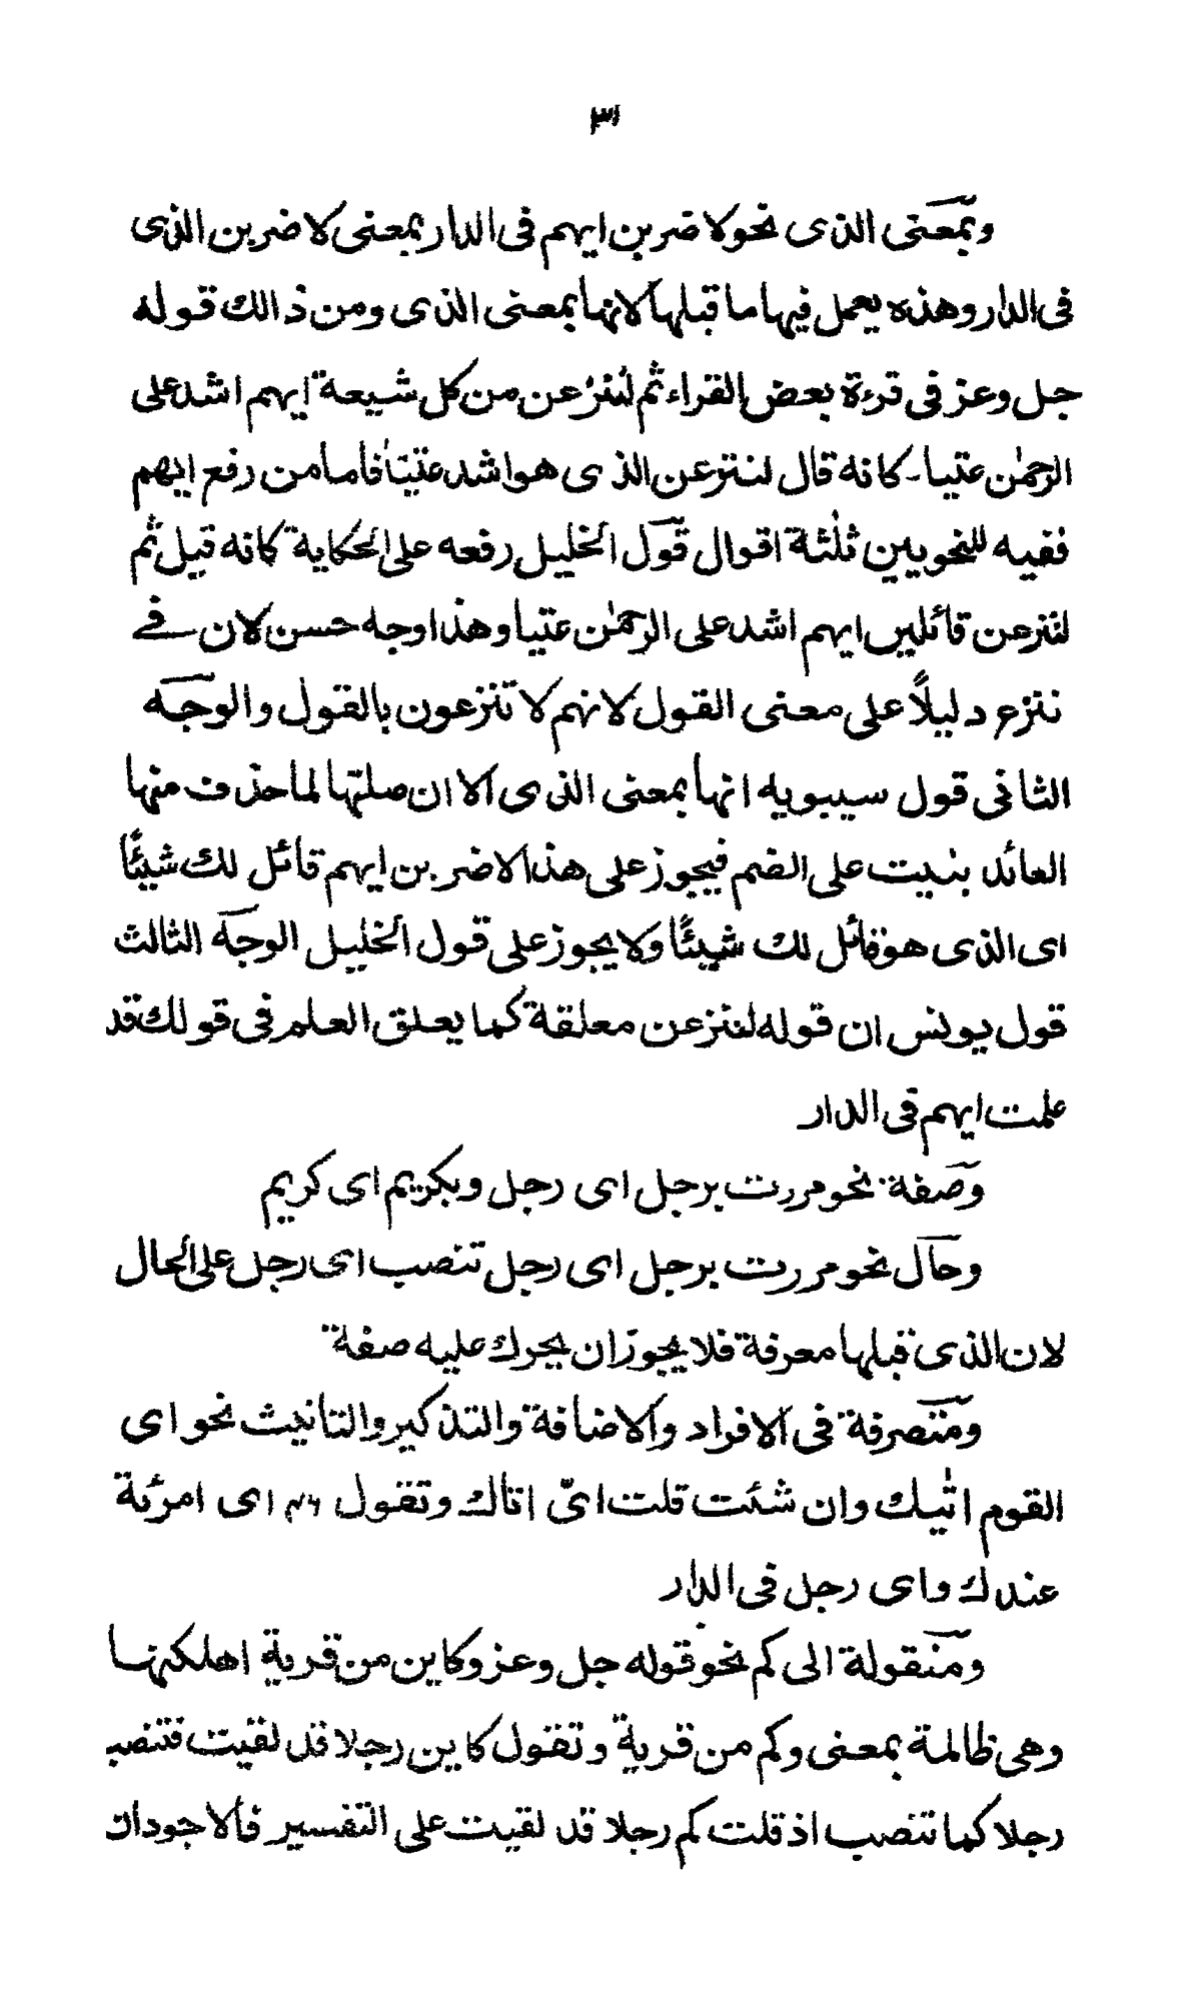 ٣١
وبمعنى الذى نحو لاضربن ايهم فى الدار بمعنى لاضربن الذى
فى الدار وهذه يعمل فيها ما قبلها لانها بمعنى الذى ومن ذالك قوله
جل وعز فى قرءة بعض القراء ثم لننزعن من كل شيعة ايهم اشد على
الرحمٰن عتيا - كانه قال لننزعن الذى هو اشد عتيّا فاما من رفع ايهم
ففيه للنحويين ثلٰثة اقوال قول الخليل رفعه على الحكاية كانه قيل ثم
لننزعن قائلين ايهم اشد على الرحمٰن عتيا وهذا وجه حسن لان فے
ننزع دليلاً على معنى القول لانهم لا تنزعون بالقول والوجه
الثانى قول سيبويه انها بمعنى الذى الا ان صلتها لما حذف منها
العائد بنيت على الضم فيجوز على هذا لاضربن ايهم قائل لك شيئًا
اى الذى هو قائل لك شيئًا ولا يجوز على قول الخليل الوجه الثالث
قول يونس ان قوله لننزعن معلقة كما يعلق العلم فى قولك قد
علمت ايهم فى الدار
وصفة نحو مررت برجل اى رجل وبكريم اى كريم
وحال نحو مررت برجل اى رجل تنصب اى رجل على الحال
لان الذى قبلها معرفة فلا يجوز ان يجرك عليه صفة
ومتصرفة فى الافراد والاضافة والتذكير والتانيث نحو اى
القوم اتٰيك وان شئت قلت اىّ اتاك وتقول اى امرئة
عندك واى رجل فى الدار
ومنقولة الى كم نحو قوله جل وعز وكاين من قرية اهلكنها
وهى ظالمة بمعنى وكم من قرية وتقول كاين رجلا قد لقيت فتنصب
رجلا كما تنصب اذ قلت كم رجلا قد لقيت على التفسير فالاجود ان